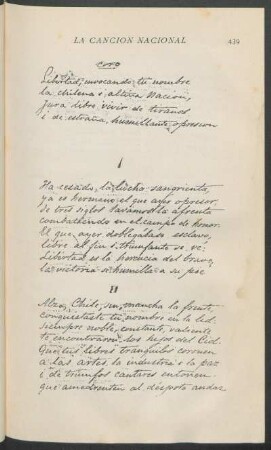 LA CANCION NACIONAL 439
coro
Libertad, invocando tu nombre
la chilena i altiva Nacion,
jura libre vivir de tiranos
i de estraña, humillante, opresion
I
Ha cesado la lucha sangrienta,
ya es hermano el que ayer opresor,
de tres siglos lavamos la afrenta
combatiendo en el campo de honor.
El que ayer doblegábase esclavo,
libre al fin i triunfante se ve:
Libertad es la herencia del bravo,
la victoria se humilla a su pié
II
Alza, Chile, sin mancha la frente,
conquistaste tu nombre en la lid,
siempre noble, constante, valiente
te encontraron los hijos del Cid.
Que tus libres tranquilos coronen
a las artes, la industria i la paz
i de triunfos cantares entonen
que amedrenten al déspota audaz